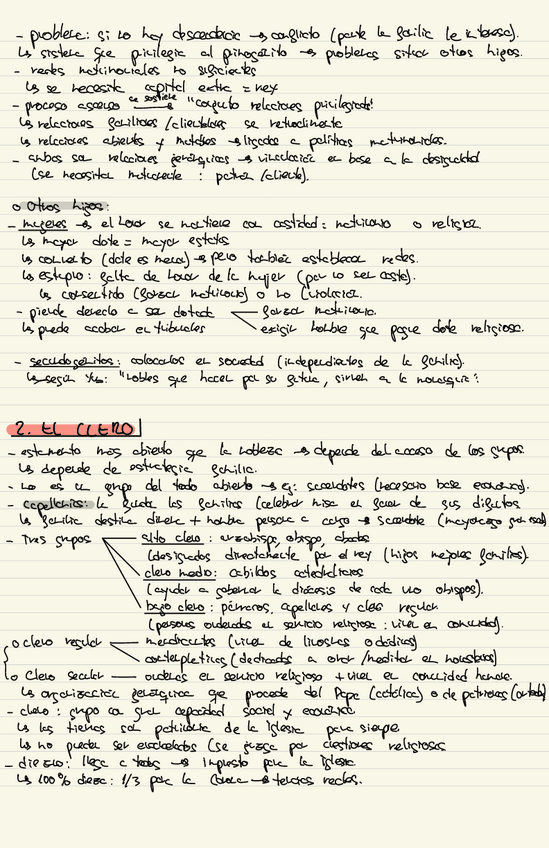 - problema: si no hay descendencia → conflicto (parte la familia le interesa).
↳ sistema que privilegia al primogénito → problemas situar otros hijos.
- redes matrimoniales no suficientes
↳ se necesita capital extra = rey
- proceso ascenso se sostiene "conjunto relaciones privilegiadas"
↳ relaciones familiares/clientelares se retroalimentan
↳ relaciones abiertas y mutables → ligadas a políticas matrimoniales.
- ambas son relaciones jerárquicas → vinculación en base a la desigualdad
(se necesitan mutuamente: patrón/cliente).
o Otros hijos:
- mujeres → el honor se mantiene con castidad: matrimonio o religión.
↳ mayor dote = mayor estatus
↳ convento (dote es menor) → pero también establecen redes.
↳ estupro: falta de honor de la mujer (por no ser casta).
↳ consentido (forzar matrimonio) o no (violación).
- pierde derecho a ser dotada — forzar matrimonio.
↳ puede acabar en tribunales — exigir hombre que pague dote religiosa.
- secundogénitos: colocarlos en sociedad (independientes de la familia).
↳ según "nobles que hacen por su fortuna, sirven a la monarquía".
2. EL CLERO
- estamento más abierto que la nobleza → depende del acceso de los grupos.
↳ depende de estrategia familiar.
- no es un grupo del todo abierto → ej: sacerdotes (necesario base económica).
- capellanías: la funda las familias (celebrar misa en favor de sus difuntos
↳ familia destina dinero + nombra persona a cargo → sacerdote (mayorazgo
- Tres grupos — alto clero: arzobispo, obispo, abades
(designados directamente por el rey (hijos mejores familias).
clero medio: cabildos catedralicios
(ayudan a gobernar la diócesis de cada uno obispos).
bajo clero: párrocos, capellanes y clero regular
(personas ordenadas al servicio religioso: viven en comunidad).
o clero regular — mendicantes (viven de limosnas o dádivas)
contemplativos (dedicados a orar/meditar en monasterios)
o Clero secular — ordenes al servicio religioso + viven en comunidad humana.
↳ organización jerárquica que procede del Papa (católica) o de patriarcas (ortodoxa)
- clero: grupo con gran capacidad social y económica
↳ las tierras son patrimonio de la Iglesia para siempre
↳ no pueden ser encarcelados (se juzga por cuestiones religiosas
- diezmo: llega a todos → impuesto para la Iglesia
↳ 100% diezmo: 1/3 para la Corona → tercias reales.